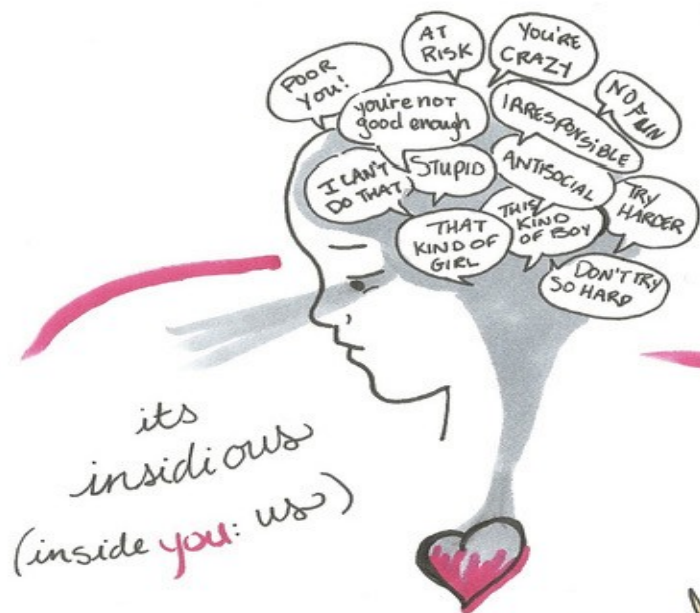 POOR
YOU!
AT
RISK
YOU'RE
CRAZY
you're not
good enough
IRRESPONSIBLE
I CAN'T
DO THAT
STUPID
ANTISOCIAL
TRY
HARDER
THAT
KIND OF
GIRL
THIS
KIND
OF BOY
DON'T TRY
SO HARD
its
insidious
(inside you: us)